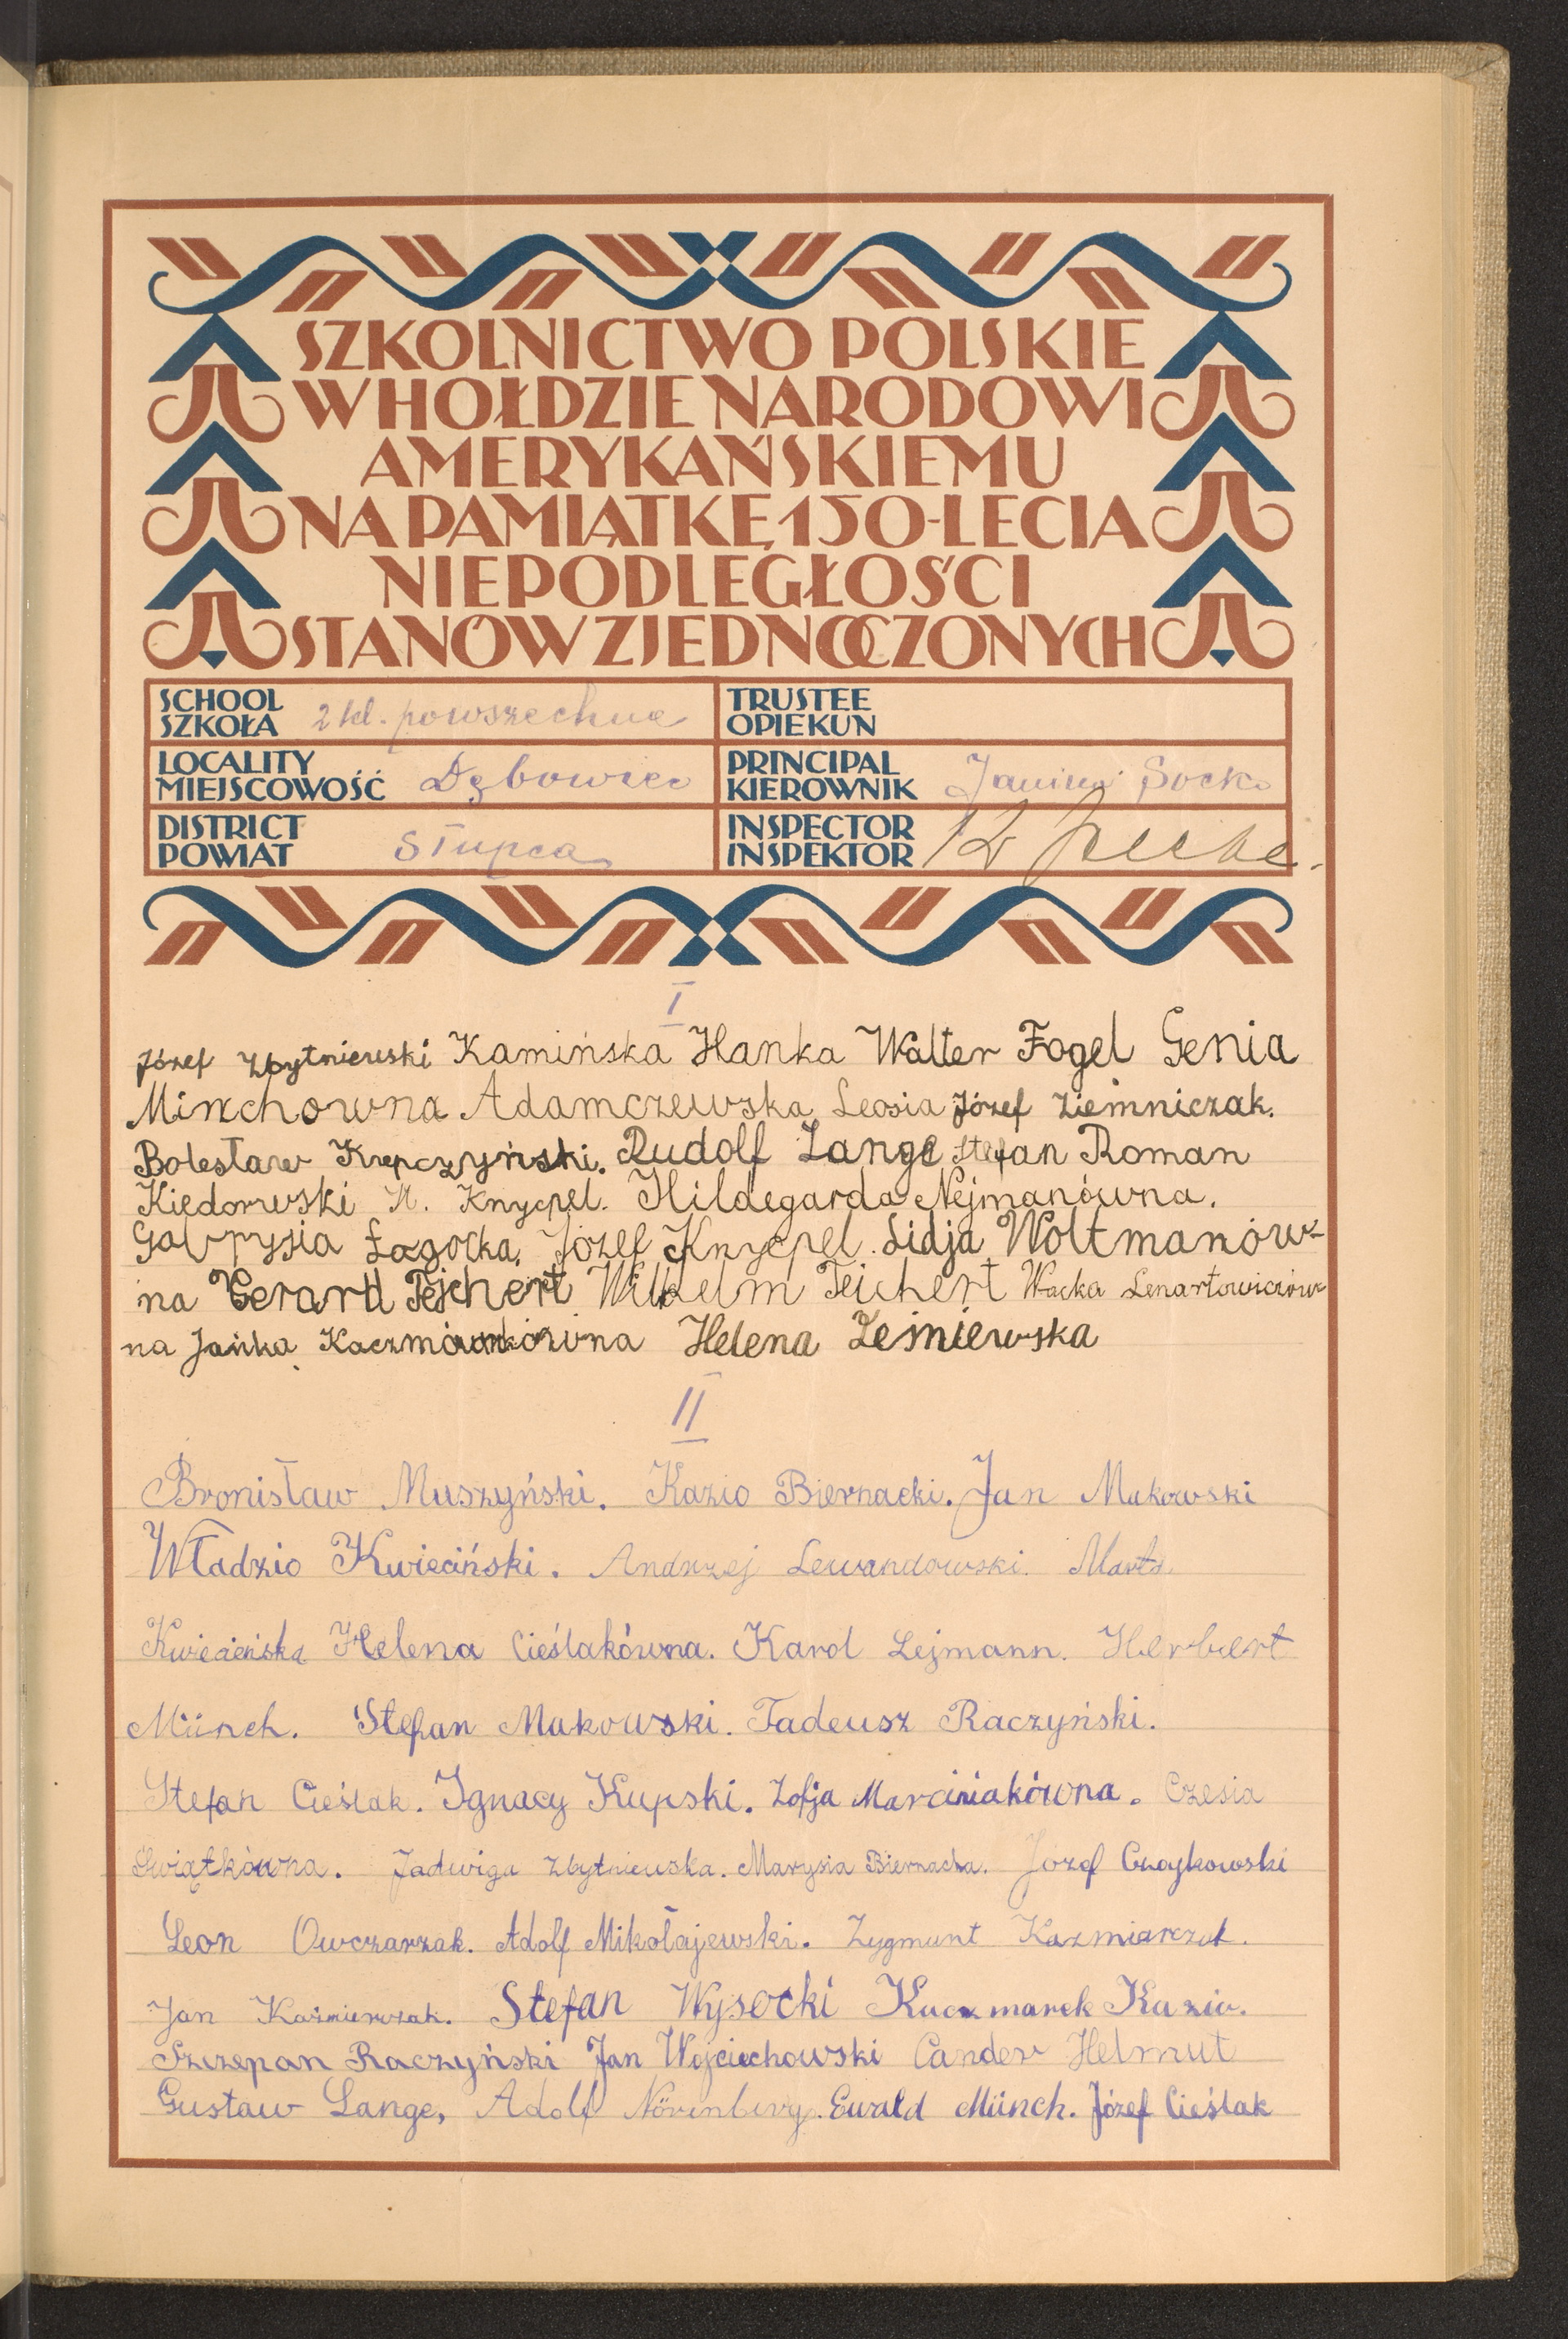 SZKOLNICTWO POLSKIE
W HOŁDZIE NARODOWI
AMERYKAŃSKIEMU
NA PAMIĄTKĘ 150-LECIA
NIEPODLEGŁOŚCI
STANÓW ZJEDNOCZONYCH
SCHOOL
SZKOŁA 2 kl. powszechna
TRUSTEE
OPIEKUN
LOCALITY
MIEJSCOWOŚĆ Dębowiec
PRINCIPAL
KIEROWNIK Janina
DISTRICT
POWIAT Słupca
INSPECTOR
INSPEKTOR
I
Józef Zbytniewski Kamińska Hanka Walter Fogel Genia
Minchowna Adamczewska Leosia Józef Ziemniczak.
Bolesław Krepczyński. Rudolf Lange Stefan Roman
Kiedorwski H. Knycpel. Hildegarda Nejmanówna.
Gabrysia Łagocka. Józef Knycpel. Lidja Woltmanów-
na Gerard Tejchert Wilhelm Teichert Wacka Lenartowiczów
na Jańka Helena Leśniewska
II
Bronisław Muszyński. Kazio Biernacki. Jan Makowski
Władzio Kwieciński. Andrzej Lewandowski. Marta
Kwiecieńska Helena Cieślakówna. Karol Lejmann. Herbert
Münch. Stefan Makowski. Tadeusz Raczyński.
Stefan Cieślak. Ignacy Kupski. Zofja Marciniakówna. Czesia
Świątkówna. Jadwiga Zbytniewska. Marysia Biernacka. Józef
Leon Owczarzak. Adolf Mikołajewski. Zygmunt Kazmiarczak.
Jan Kaźmierczak. Stefan Wysocki Kaczmarek Kazio.
Szczepan Raczyński Jan Wojciechowski Cander Helmut
Gustaw Lange, Adolf Nörenberg. Ewald Münch. Józef Cieślak